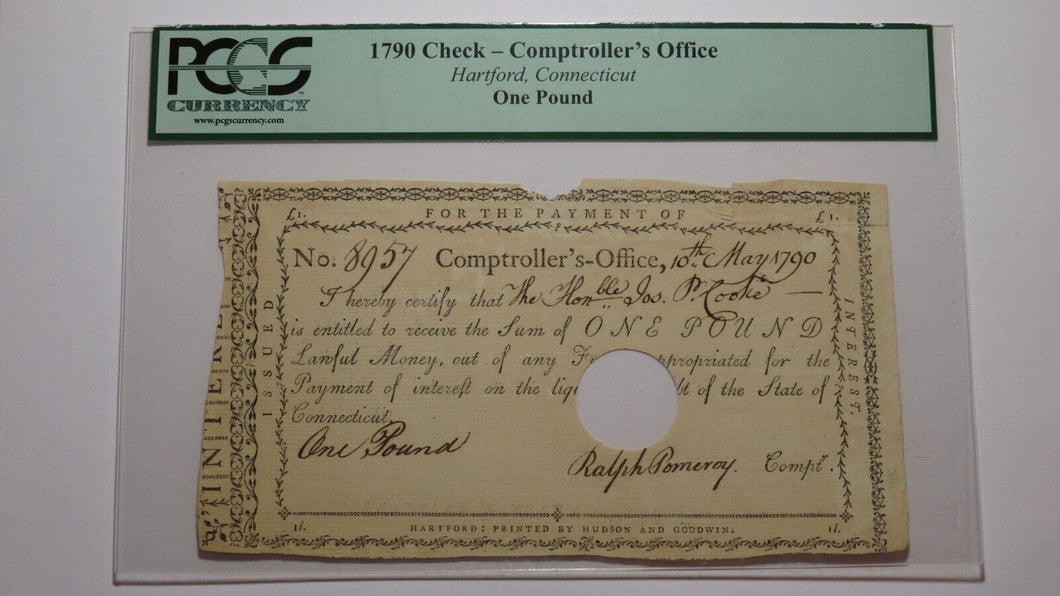 PCGS
CURRENCY
www.pcgscurrency.com
1790 Check – Comptroller's Office
Hartford, Connecticut
One Pound
£1. FOR THE PAYMENT OF £1.
No. 8957 Comptroller's-Office, 10th May 1790
I hereby certify that The Honble Jos. P. Cooke
is entitled to receive the Sum of ONE POUND
Lawful Money, out of any F ppropriated for the
Payment of interest on the liq bt of the State of
Connecticut.
One Pound
Ralph Pomeroy. Comptr.
1l. HARTFORD: PRINTED BY HUDSON AND GOODWIN. 1l.
ISSUED
INTEREST.